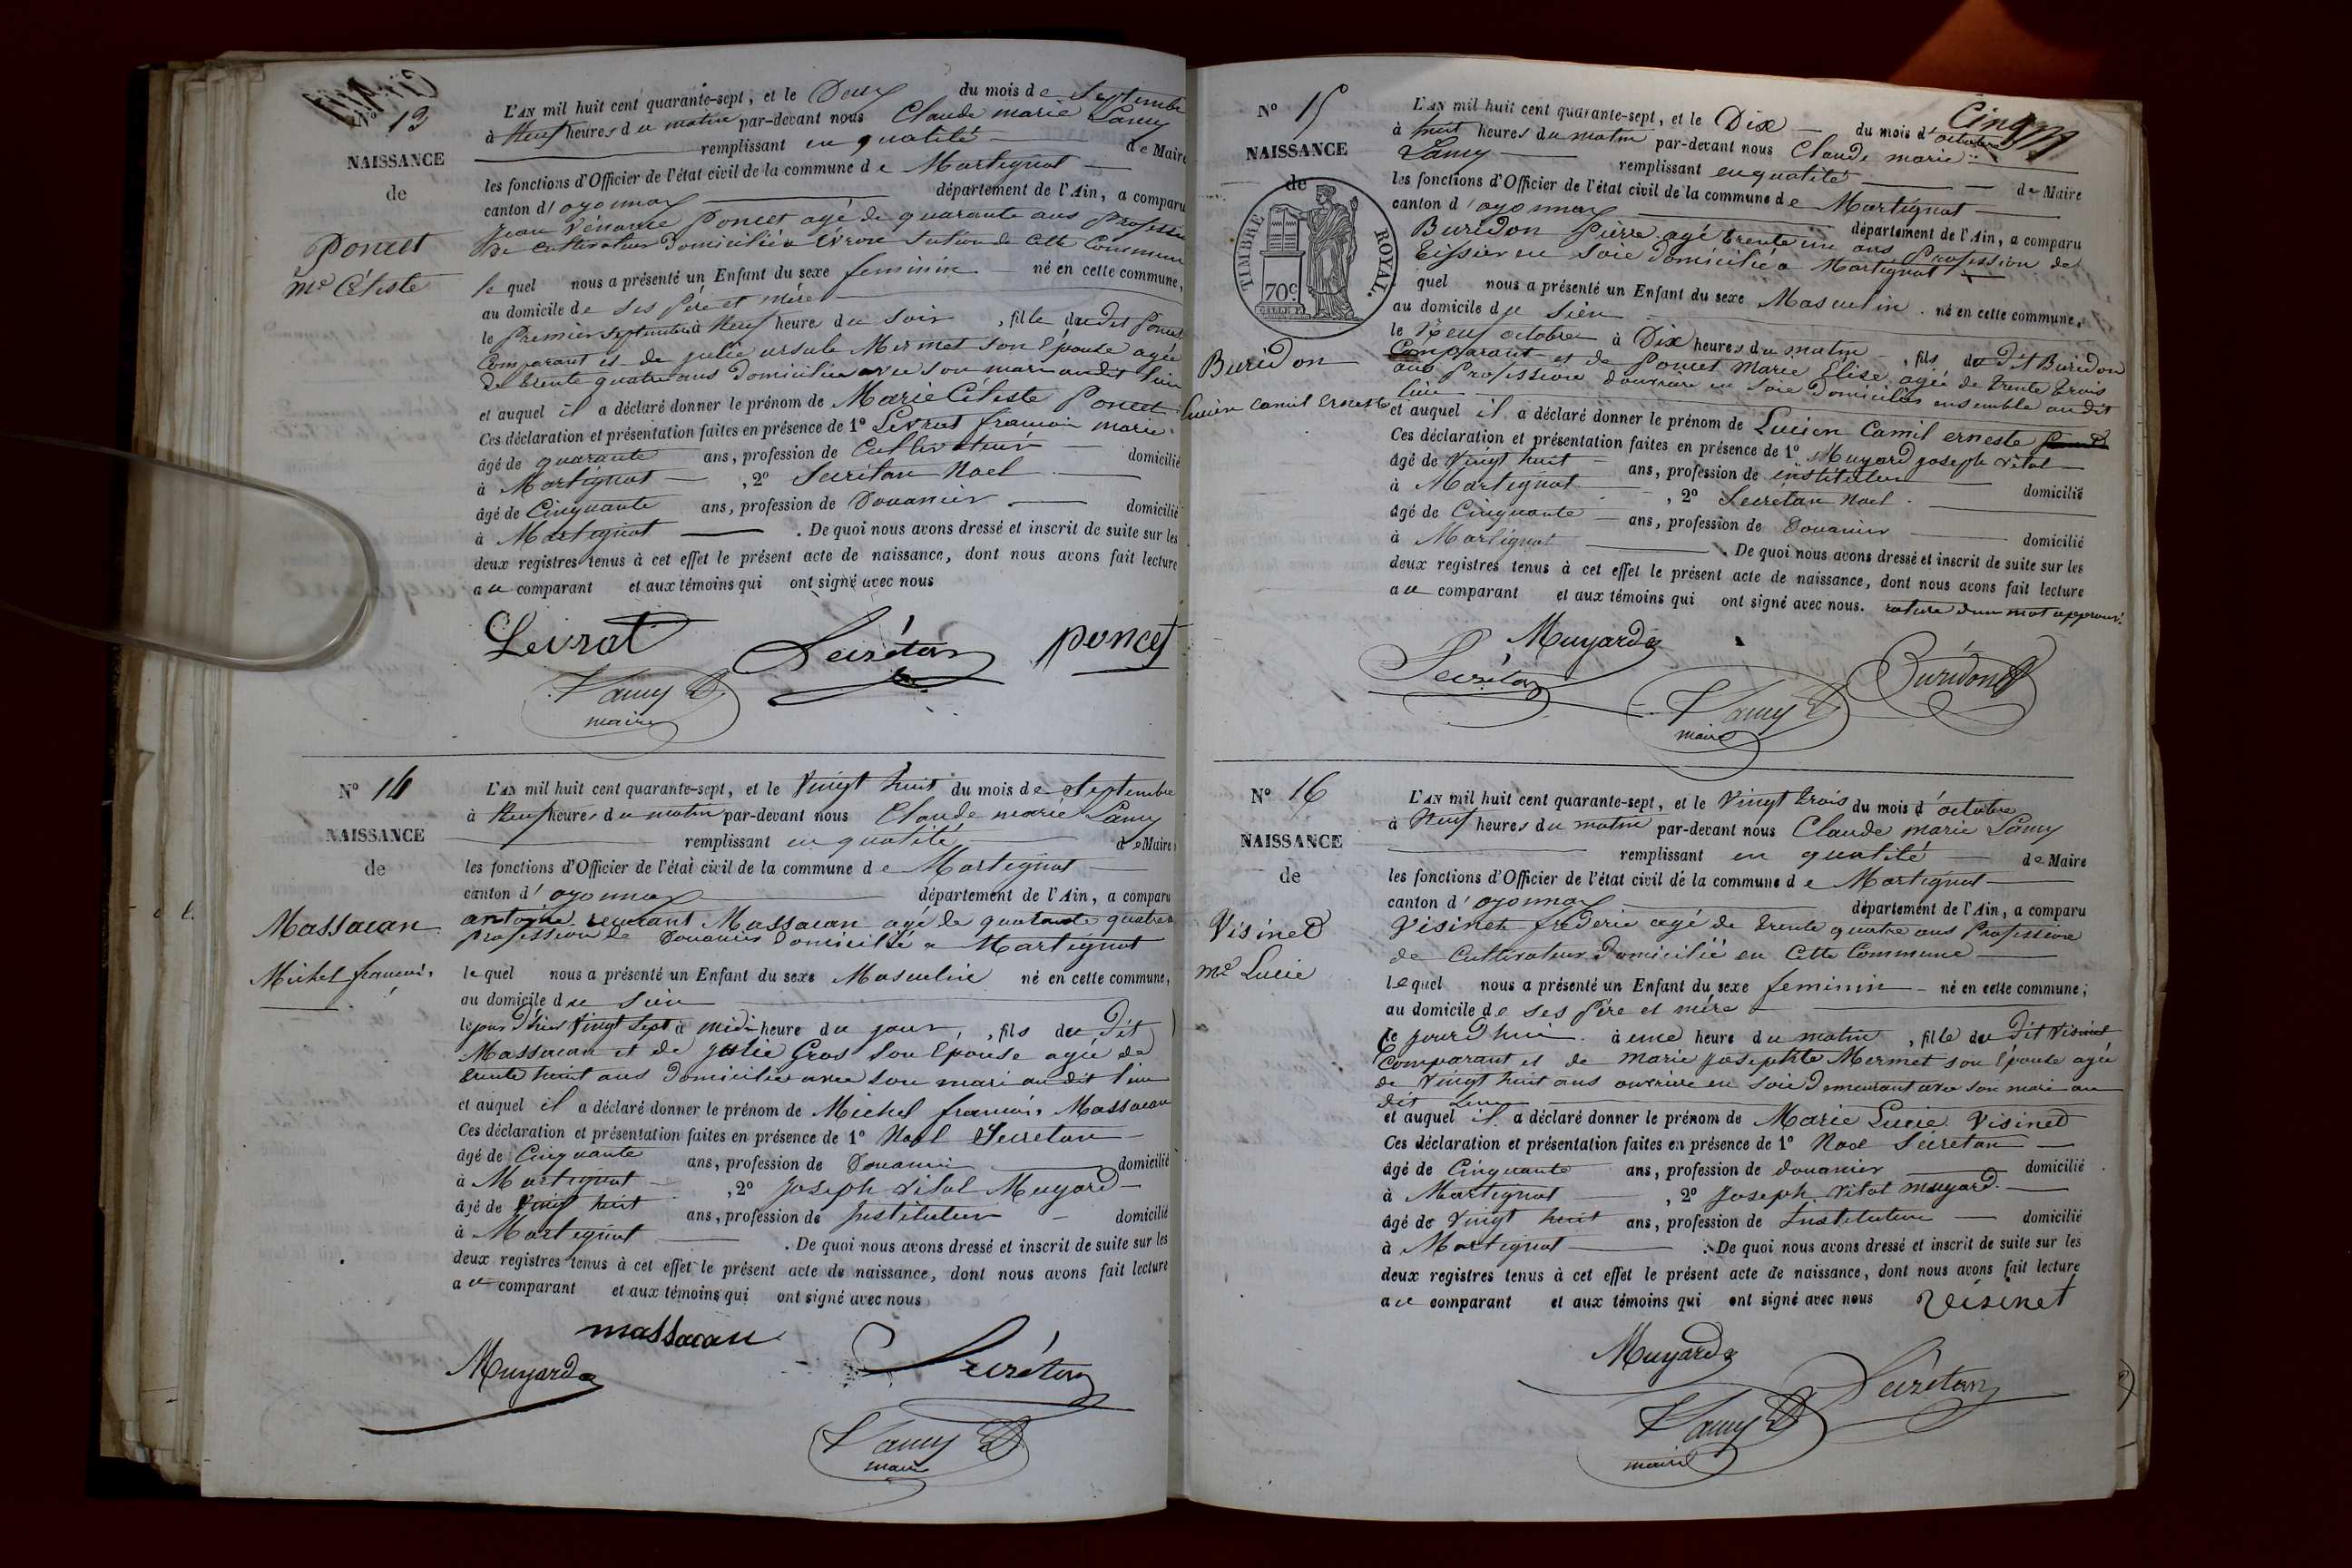 N° 13
NAISSANCE
de
Poncet
Mie Céleste
L'AN mil huit cent quarante-sept, et le Deux du mois de Septembre
à Neuf heures du matin par-devant nous Claude marie Lamy
remplissant en qualité de Maire
les fonctions d'Officier de l'état civil de la commune de Martignat
canton d'oyonnax département de l'Ain, a comparu
jean Vénance Poncet agé de quarante ans Profession
de Cultivateur domicilié à Evron Section de Cette Commune
lequel nous a présenté un Enfant du sexe feminin né en cette commune,
au domicile de ses Père et mère
le Premier septembre à Neuf heures du soir, fille dudit Poncet
Comparant et de julie ursule Mermet son Epouse agée
de trente quatre ans domiciliée avec son mari audit lieu
et auquel il a déclaré donner le prénom de Marie Céleste Poncet
Ces déclaration et présentation faites en présence de 1° Levrat francois marie
âgé de quarante ans, profession de Cultivateur domicilié
à Martignat, 2° Secretan Noel
âgé de Cinquante ans, profession de Douanier domicilié
à Martignat. De quoi nous avons dressé et inscrit de suite sur les
deux registres tenus à cet effet le présent acte de naissance, dont nous avons fait lecture
au comparant et aux témoins qui ont signé avec nous
Levrat Secrétan poncet
Lamy
maire
N° 14
NAISSANCE
de
Massacan
Michel francois
L'AN mil huit cent quarante-sept, et le Vingt huit du mois de Septembre
à Neuf heures du matin par-devant nous Claude marie Lamy
remplissant en qualité de Maire
les fonctions d'Officier de l'état civil de la commune de Martignat
canton d'oyonnax département de l'Ain, a comparu
antoine Massacan agé de quarante quatre
profession de Douanier domicilié a Martignat
lequel nous a présenté un Enfant du sexe Masculin né en cette commune,
au domicile du sien
le jour d'hier Vingt Sept à midi heure du jour, fils du dit
Massacan et de julie Gros son Epouse agée de
trente huit ans domiciliée avec son mari au dit lieu
et auquel il a déclaré donner le prénom de Michel francois Massacan
Ces déclaration et présentation faites en présence de 1° Noel Secretan
âgé de Cinquante ans, profession de Douanier domicilié
à Martignat, 2° joseph vital Muyard
âgé de Vingt huit ans, profession de Instituteur domicilié
à Martignat. De quoi nous avons dressé et inscrit de suite sur les
deux registres tenus à cet effet le présent acte de naissance, dont nous avons fait lecture
au comparant et aux témoins qui ont signé avec nous
massacan
Muyard Secrétan
Lamy
maire
Cinq
N° 15
NAISSANCE
de
TIMBRE ROYAL.
70c
Buridon
Lucien Camil Erneste
L'AN mil huit cent quarante-sept, et le Dix du mois d'octobre
à huit heures du matin par-devant nous Claude marie
Lamy remplissant en qualité de Maire
les fonctions d'Officier de l'état civil de la commune de Martignat
canton d'oyonnax département de l'Ain, a comparu
Buridon Pierre agé trente un ans Profession de
tissier en soie domicilié a Martignat
quel nous a présenté un Enfant du sexe Masculin né en cette commune,
au domicile du sien
le Neuf octobre à Dix heures du matin, fils du dit Buridon
Comparant et de Poncet Marie Elise agée de trente trois
ans Profession d'ouvriere en soie domiciliés ensemble au dit
lieu
et auquel il a déclaré donner le prénom de Lucien Camil erneste
Ces déclaration et présentation faites en présence de 1° Muyard joseph vital
âgé de Vingt huit ans, profession de instituteur domicilié
à Martignat, 2° Secretan Noel
âgé de Cinquante ans, profession de Douanier domicilié
à Martignat. De quoi nous avons dressé et inscrit de suite sur les
deux registres tenus à cet effet le présent acte de naissance, dont nous avons fait lecture
au comparant et aux témoins qui ont signé avec nous. rature d'un mot approuvé.
Muyard
Secrétan Buridon
Lamy
maire
N° 16
NAISSANCE
de
Visinet
Mie Lucie
L'AN mil huit cent quarante-sept, et le Vingt trois du mois d'octobre
à Neuf heures du matin par-devant nous Claude marie Lamy
remplissant en qualité de Maire
les fonctions d'Officier de l'état civil de la commune de Martignat
canton d'oyonnax département de l'Ain, a comparu
Visinet frederic agé de trente quatre ans Profession
de Cultivateur domicilié en Cette Commune
lequel nous a présenté un Enfant du sexe feminin né en cette commune;
au domicile de ses Père et mère
le jour d'hui à une heure du matin, fille du dit Visinet
Comparant et de Marie josephte Mermet son Epouse agée
de Vingt huit ans ouvriere en soie demeurant avec son mari au
dit lieu
et auquel il a déclaré donner le prénom de Marie Lucie Visinet
Ces déclaration et présentation faites en présence de 1° Noel Sécretan
âgé de Cinquante ans, profession de douanier domicilié
à Martignat, 2° joseph Vital Muyard
âgé de Vingt huit ans, profession de Instituteur domicilié
à Martignat. De quoi nous avons dressé et inscrit de suite sur les
deux registres tenus à cet effet le présent acte de naissance, dont nous avons fait lecture
au comparant et aux témoins qui ont signé avec nous Visinet
Muyard
Secrétan
Lamy
maire